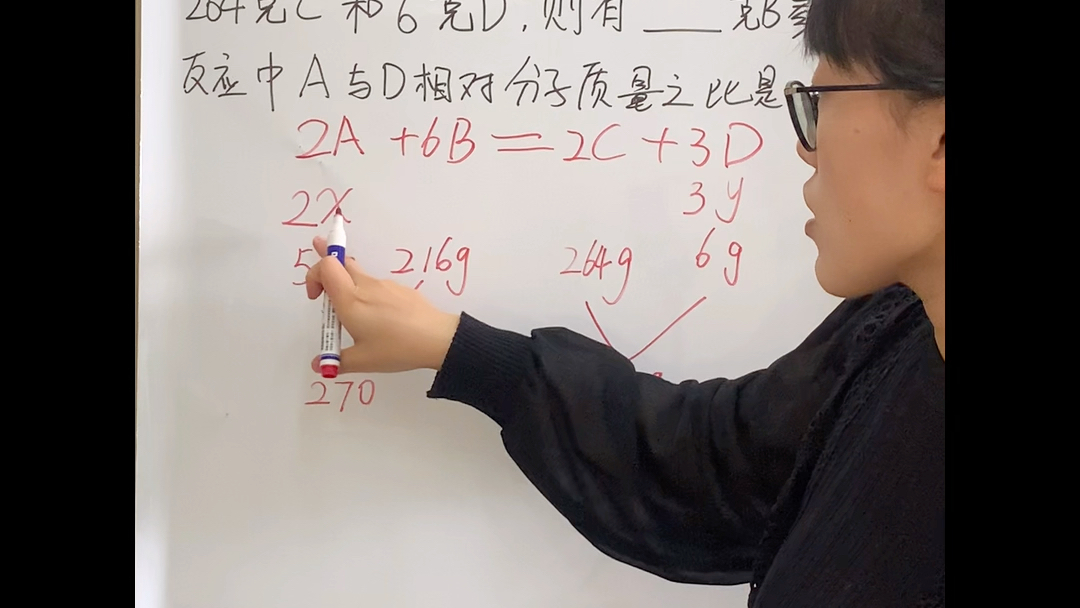 264克C和6克D,则有___克B
反应中A与D相对分子质量之比是
2A+6B=2C+3D
2x 3y
5 216g 264g 6g
270